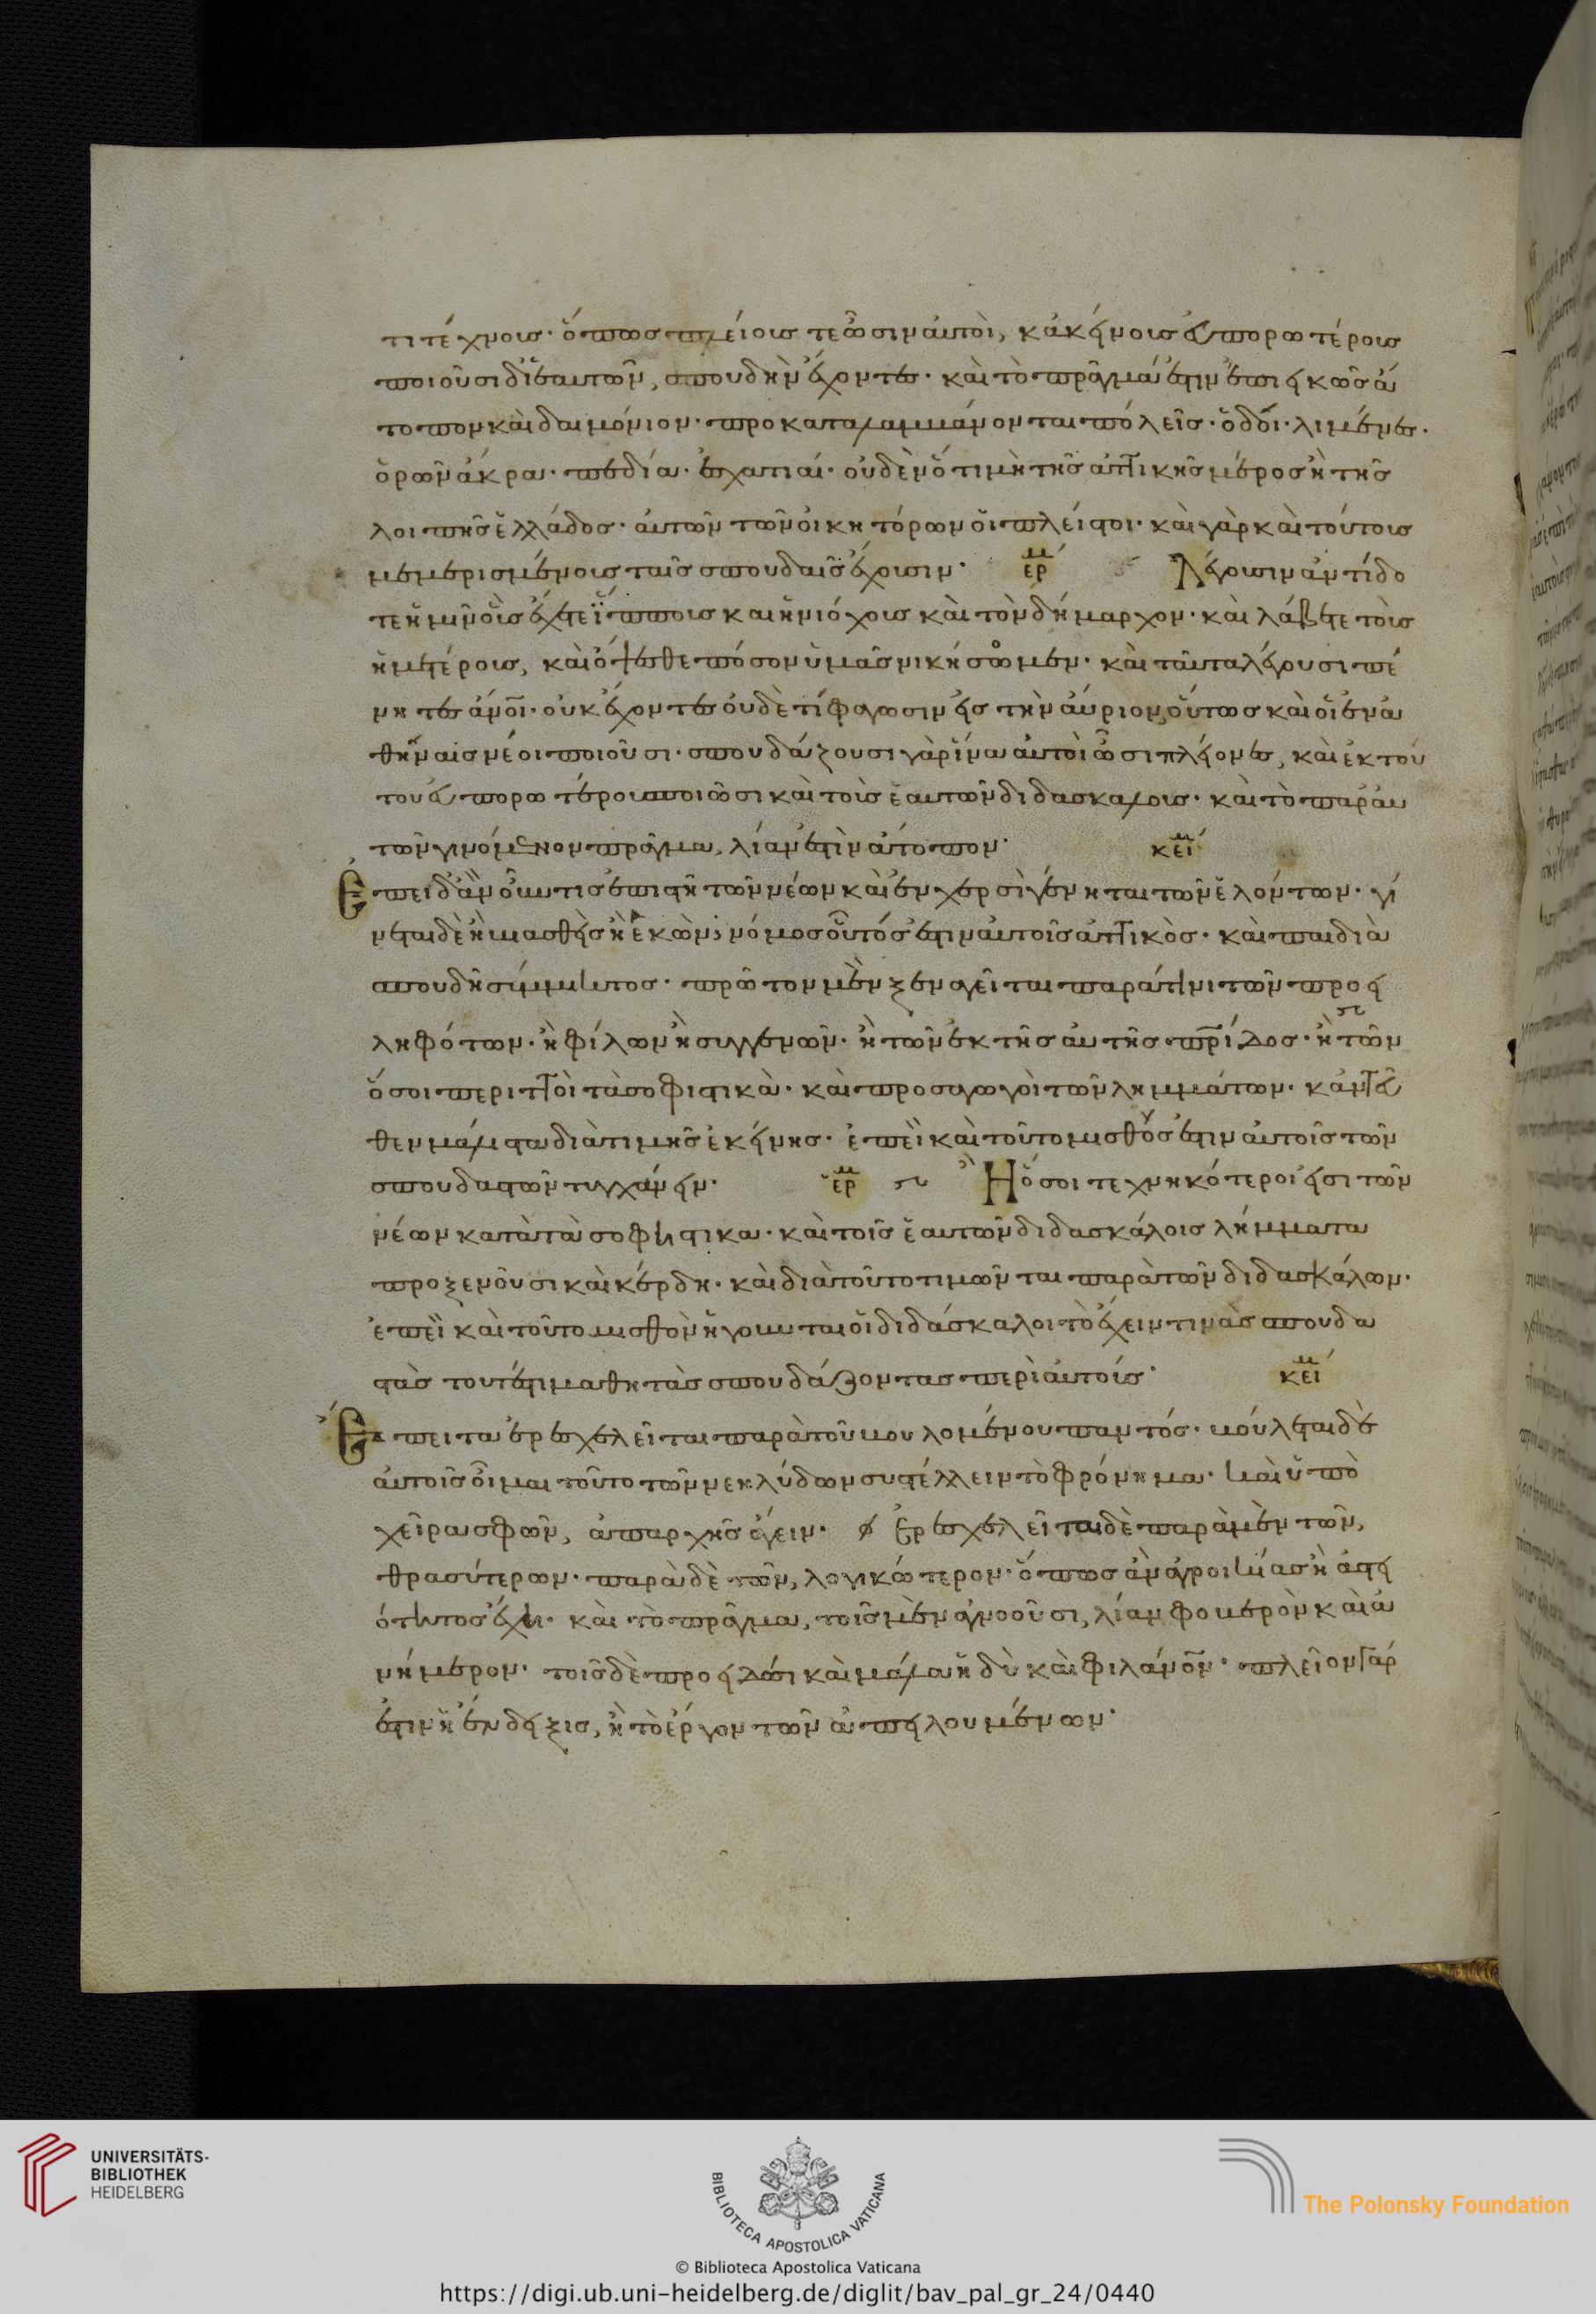 τιτέχνοις· ὅπως πλείοις τε ὦσιν αὐτοὶ, κἀκείνοις εὐπορωτέροις
ποιοῦσι δι᾽ ἑαυτῶν, σπουδὴν ἔχοντες· καὶ τὸ πρᾶγμά ἐστιν ἐπιεικῶς ἄ
τοπον καὶ δαιμόνιον· προκαταλαμμάνονται πόλεις· ὁδοί· λιμένες·
ὀρῶν ἄκρα· πεδία· ἐσχατιαί· οὐδὲν ὅτι μὴ τῆς ἀττικῆς μέρος ἢ τῆς
λοιπῆς ἑλλάδος· αὐτῶν τῶν οἰκητόρων οἱ πλεῖστοι· καὶ γὰρ καὶ τούτοις
μεμερισμένοις ταῖς σπουδαῖς ἔχουσιν· ἑρμ Λέγουσιν ἀντίδο
τε ἡμῖν οἷς ἔχετε ἵπποις καὶ ἡνιόχοις καὶ τὸν δήμαρχον· καὶ λάβετε τοῖς
ἡμετέροις, καὶ ὄψεσθε πόσον ὑμᾶς νικήσομεν· καὶ ταῦτα λέγουσι πέ
νητες ἄνοι· οὐκ ἔχοντες οὐδὲ τί φάγωσιν εἰς τὴν αὔριον, οὕτως καὶ οἱ ἐν ἀ
θήναις νέοι ποιοῦσι· σπουδάζουσι γὰρ ἵνα αὐτοὶ ὦσι πλείονες, καὶ ἐκ τού
του εὐπορωτέροις ποιῶσι καὶ τοῖς ἑαυτῶν διδασκάλοις· καὶ τὸ παρ᾽ αὐ
τῶν γινόμενον πρᾶγμα, λίαν ἐστὶν ἄτοπον· κεί
Ἐπειδ᾽ ἂν οὖν τις ἐπιστῇ τῶν νέων καὶ ἐν χερσὶ γένηται τῶν ἑλόντων· γί
νεται δὲ ἢ βιασθεὶς ἢ ἑκών· νόμος οὗτός ἐστιν αὐτοῖς ἀττικὸς· καὶ παιδιὰ
σπουδῇ σύμμικτος· πρῶτον μὲν ξεναγεῖται παρά τινι τῶν προει
ληφότων· ἢ φίλων ἢ συγγενῶν· ἢ τῶν ἐκ τῆς αὐτῆς πρίδος· ἢ τῶν
ὅσοι περιττοὶ τὰ σοφιστικὰ· καὶ προσαγωγοὶ τῶν λημμάτων· κἀντεῦ
θεν μάλιστα διὰ τιμῆς ἐκείνης· ἐπεὶ καὶ τοῦτο μισθός ἐστιν αὐτοῖς τῶν
σπουδαστῶν τυγχάνειν· ἑρμ Ἢ ὅσοι τεχνηκότεροί εἰσι τῶν
νέων κατὰ τὰ σοφιστικα· καὶ τοῖς ἑαυτῶν διδασκάλοις λήμματα
προξενοῦσι καὶ κέρδη· καὶ διὰ τοῦτο τιμῶνται παρὰ τῶν διδασκάλων·
ἐπεὶ καὶ τοῦτο μισθὸν ἡγοῦνται οἱ διδάσκαλοι τὸ ἔχειν τινὰς σπουδα
στὰς τουτέστι μαθητὰς σπουδάζοντας περὶ αὐτούς· κεί
Ἔπειτα ἐρεσχελεῖται παρὰ τοῦ βουλομένου παντός· βούλεται δὲ
αὐτοῖς οἶμαι τοῦτο τῶν νεηλύδων συστέλλειν τὸ φρόνημα· καὶ ὑπὸ
χεῖρα σφῶν, ἀπαρχῆς ἄγειν· Ἐρεσχελεῖται δὲ παρὰ μὲν τῶν,
θρασύτερον· παρὰ δὲ τῶν, λογικώτερον· ὅπως ἂν ἀγροικίας ἢ ἀστει
ότητος ἔχῃ· καὶ τὸ πρᾶγμα, τοῖς μὲν ἀγνοοῦσι, λίαν φοβερὸν καὶ ἀ
νήμερον· τοῖς δὲ προειδόσι καὶ μάλα ἡδὺ καὶ φιλάνον· πλεῖον γάρ
ἐστιν ἡ ἔνδειξις, ἢ τὸ ἔργον τῶν ἀπειλουμένων·
UNIVERSITÄTS-
BIBLIOTHEK
HEIDELBERG
BIBLIOTECA APOSTOLICA VATICANA
The Polonsky Foundation
© Biblioteca Apostolica Vaticana
https://digi.ub.uni-heidelberg.de/diglit/bav_pal_gr_24/0440